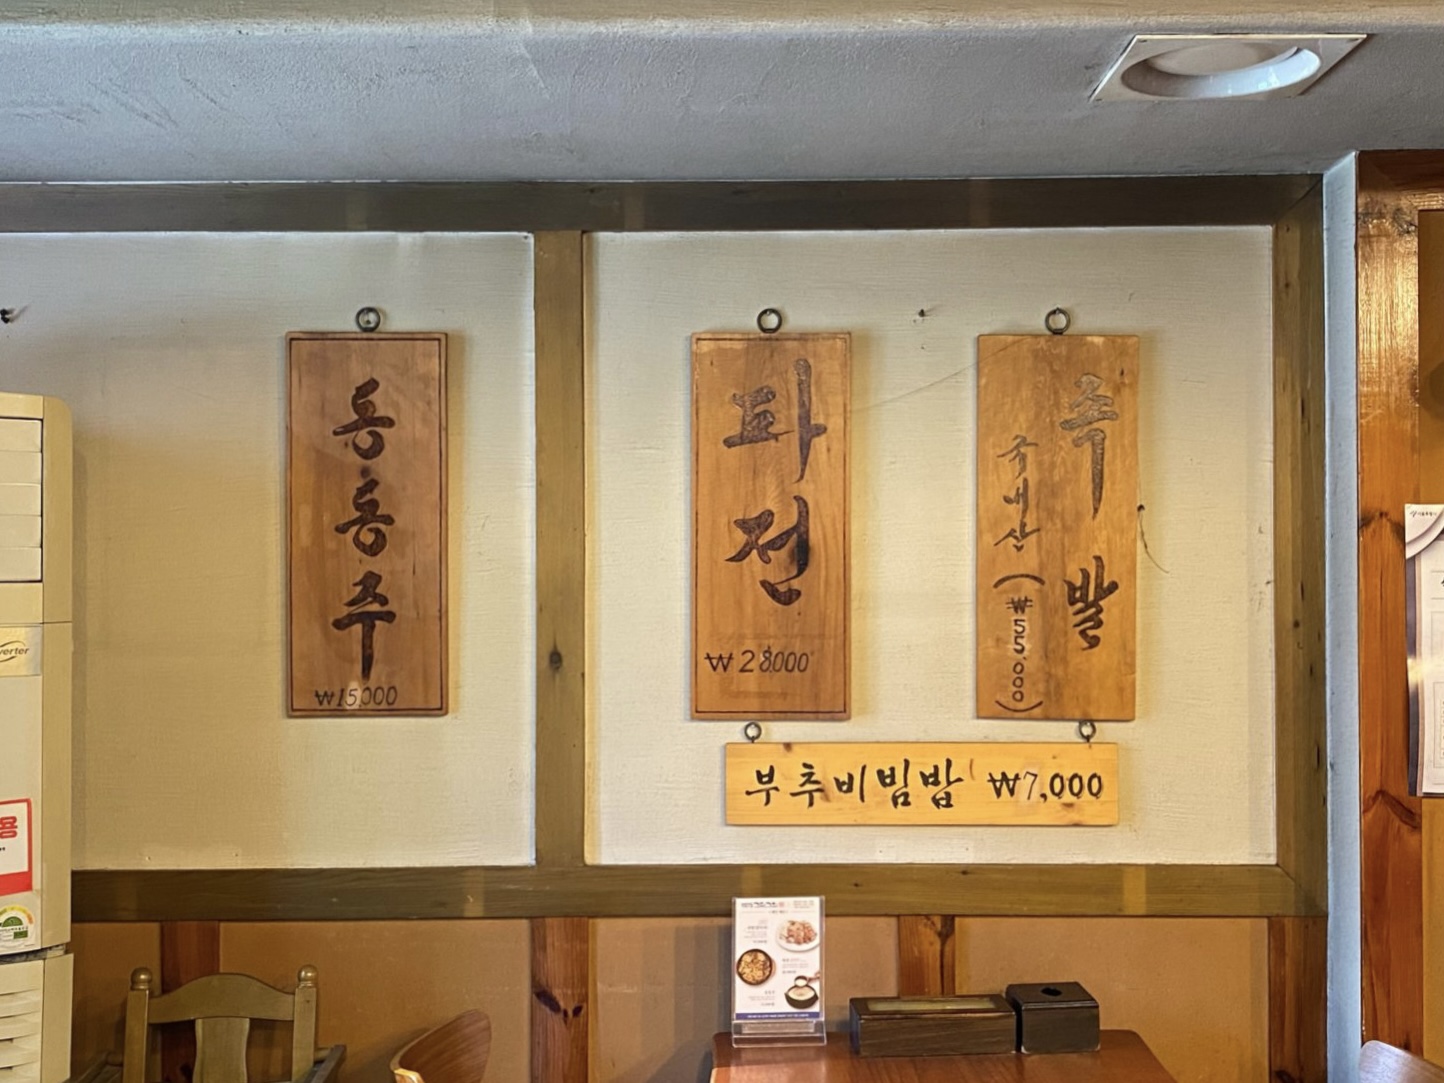 동동주
₩15,000
파전
₩28,000
족발
국내산
(₩55,000)
부추비빔밥 ₩7,000